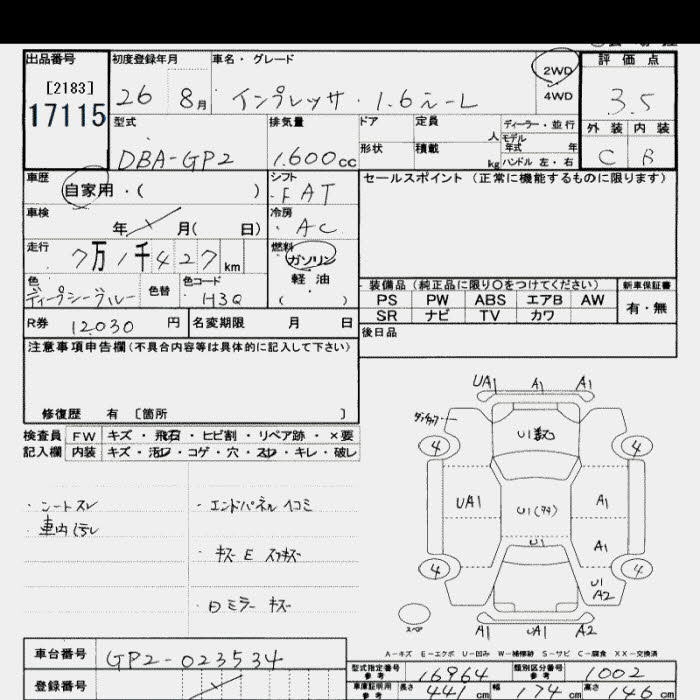 出品番号
[2183]
17115
初度登録年月
26 8月
車名・グレード
インプレッサ・1.6i-L
2WD
4WD
評価点
3.5
外装 内装
C B
型式
DBA-GP2
排気量
1.600cc
ドア 定員 人
形状 積載 kg
ディーラー・並行
モデル年式 年
ハンドル 左・右
車歴
自家用・( )
シフト
FAT
セールスポイント（正常に機能するものに限ります）
車検
年 月( 日)
冷房
AC
走行
7万1千427km
燃料
ガソリン
軽油
( )
色
ディープシーブルー
色替
色コード
H3Q
装備品（純正品に限り〇をつけてください）
PS PW ABS エアB AW
SR ナビ TV カワ
新車保証書
有・無
R券 12030円
名変期限 月 日
後日品
注意事項申告欄(不具合内容等は具体的に記入して下さい)
修復歴 有 [箇所 ]
検査員記入欄
FW キズ・飛石・ヒビ割・リペア跡・×要
内装 キズ・汚レ・コゲ・穴・スレ・キレ・破レ
・シートスレ
・車内汚レ
・エンドパネル凹コミ
・キズ E スリキズ
・日ミラー キズ
UA1 A1 A1
4 4
UA1 U1 A1
U1
A1
4 4
U1
A2
スペア
A1 UA1 A2
A-キズ E-エクボ U-凹み W-補修跡 S-サビ C-腐食 XX-交換済
車台番号
GP2-023534
登録番号
型式指定番号 参考
16964
類別区分番号 参考
1002
車庫証明用 参考
長さ 441cm 幅 174cm 高さ 146cm